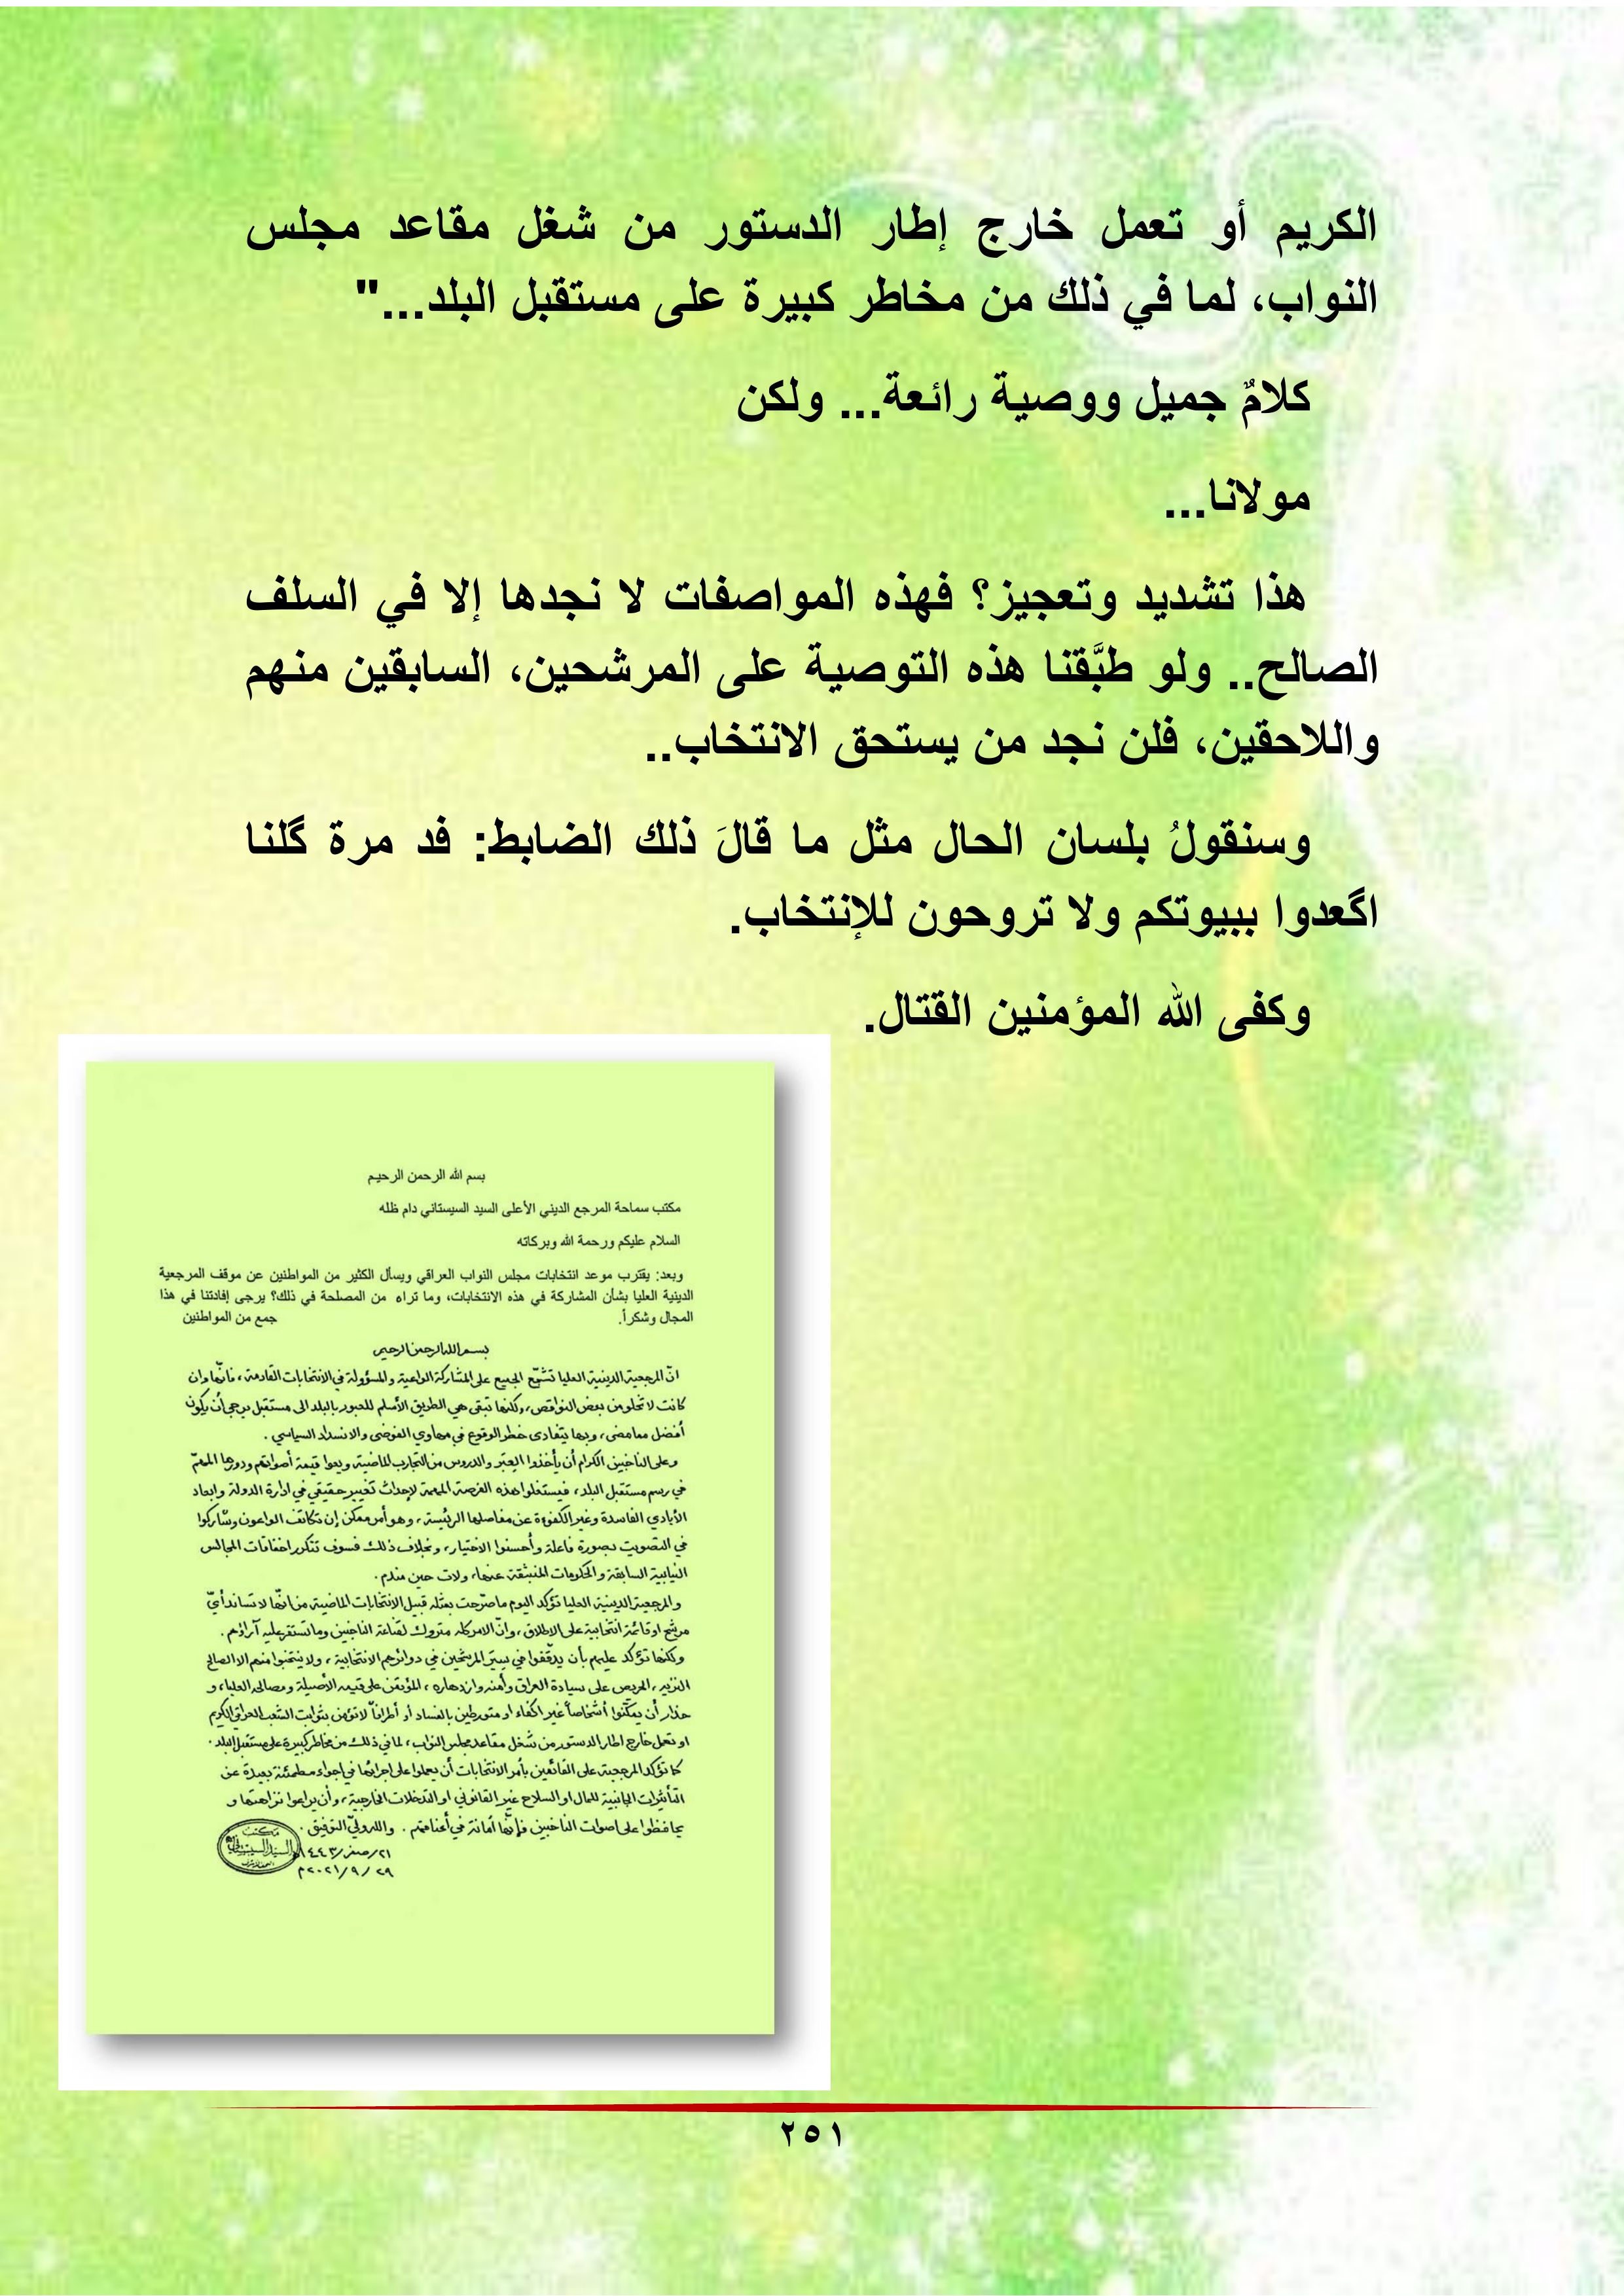 الكريم أو تعمل خارج إطار الدستور من شغل مقاعد مجلس
النواب، لما في ذلك من مخاطر كبيرة على مستقبل البلد..."
كلامٌ جميل ووصية رائعة... ولكن
مولانا...
هذا تشديد وتعجيز؟ فهذه المواصفات لا نجدها إلا في السلف
الصالح.. ولو طبَّقنا هذه التوصية على المرشحين، السابقين منهم
واللاحقين، فلن نجد من يستحق الانتخاب..
وسنقولُ بلسان الحال مثل ما قالَ ذلك الضابط: فد مرة گلنا
اگعدوا ببيوتكم ولا تروحون للإنتخاب.
وكفى الله المؤمنين القتال.
بسم الله الرحمن الرحيم
مكتب سماحة المرجع الديني الأعلى السيد السيستاني دام ظله
السلام عليكم ورحمة الله وبركاته
وبعد: يقترب موعد انتخابات مجلس النواب العراقي ويسأل الكثير من المواطنين عن موقف المرجعية
الدينية العليا بشأن المشاركة في هذه الانتخابات، وما تراه من المصلحة في ذلك؟ يرجى إفادتنا في هذا
المجال وشكراً. جمع من المواطنين
بسم الله الرحمن الرحيم
انّ المرجعية الدينية العليا تشجّع الجميع على المشاركة الواعية والمسؤولة في الانتخابات القادمة، فانّها وان
كانت لا تخلو من بعض النواقص، ولكنها تبقى هي الطريق الأسلم للعبور بالبلد الى مستقبل يرجى أن يكون
أفضل مما مضى، وبها يتفادى خطر الوقوع في مهاوي الفوضى والانسداد السياسي.
وعلى الناخبين الكرام أن يأخذوا العِبَر والدروس من التجارب الماضية ويعوا قيمة أصواتهم ودورها المهمّ
في رسم مستقبل البلد، فيستغلوا هذه الفرصة المهمة لإحداث تغيير حقيقي في ادارة الدولة وابعاد
الأيادي الفاسدة وغير الكفوءة عن مفاصلها الرئيسة، وهو أمر ممكن إن تكاتف الواعون وشاركوا
في التصويت بصورة فاعلة وأحسنوا الاختيار، وبخلاف ذلك فسوف تتكرر اخفاقات المجالس
النيابية السابقة والحكومات المنبثقة عنها، ولات حين مندم.
والمرجعية الدينية العليا تؤكد اليوم ما صرّحت بمثله قبيل الانتخابات الماضية من انّها لا تساند أيّ
مرشح او قائمة انتخابية على الاطلاق، وانّ الامر كله متروك لقناعة الناخبين وما تستقر عليه آراؤهم.
ولكنها تؤكد عليهم بأن يدقّقوا في سِيَر المرشحين في دوائرهم الانتخابية، ولا ينتخبوا منهم الا الصالح
النزيه، الحريص على سيادة العراق وأمنه وازدهاره، المؤتمن على قيمه الأصيلة ومصالحه العليا، و
حذار أن يمكّنوا أشخاصاً غير اكفاء او متورطين بالفساد أو أطرافاً لا تؤمن بثوابت الشعب العراقي الكريم
او تعمل خارج اطار الدستور من شغل مقاعد مجلس النواب، لما في ذلك من مخاطر كبيرة على مستقبل البلد.
كما تؤكد المرجعية على القائمين بأمر الانتخابات أن يعملوا على اجرائها في اجواء مطمئنة بعيدة عن
التأثيرات الجانبية للمال او السلاح غير القانوني او التدخلات الخارجية، وأن يراعوا نزاهتها و
يحافظوا على اصوات الناخبين فإنّها أمانة في أعناقهم. والله وليّ التوفيق.
٢١/صفر/١٤٤٣هـ
٢٩/٩/٢٠٢١م
مكتب
السيد السيستاني
٢٥١